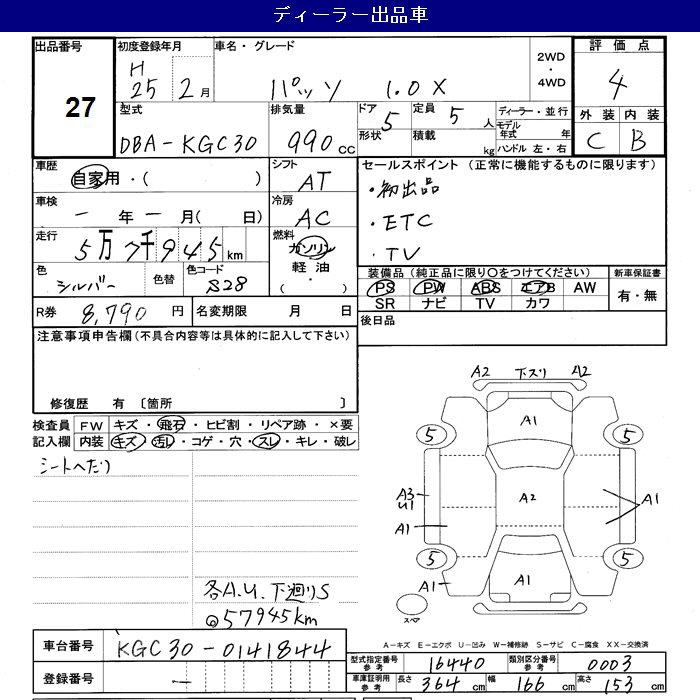 ディーラー出品車
出品番号
27
初度登録年月
H
25 2月
車名・グレード
パッソ 1.0X
2WD
・
4WD
評価点
4
外装 内装
C B
型式
DBA-KGC30
排気量
990cc
ドア
5
形状
定員
5人
積載
kg
ディーラー・並行
モデル年式 年
ハンドル 左・右
車歴
自家用・( )
シフト
AT
セールスポイント(正常に機能するものに限ります)
・初出品
・ETC
・TV
車検
一年一月( 日)
冷房
AC
走行
5万7千945km
燃料
ガソリン
軽油
・( )
色
シルバー
色替
色コード
S28
装備品(純正品に限り○をつけてください)
PS PW ABS エアB AW
SR ナビ TV カワ
新車保証書
有・無
R券
8,790円
名変期限 月 日
後日品
注意事項申告欄(不具合内容等は具体的に記入して下さい)
修復歴 有〔箇所 〕
検査員記入欄
FW キズ・飛石・ヒビ割・リペア跡・×要
内装 キズ・汚レ・コゲ・穴・スレ・キレ・破レ
シートヘたり
各A.U.下廻りS
@57945km
A2 下スリ A2
A1
5 5
A2
A3
U1
A1
A1
5 5
A1
A1
スペア
A-キズ E-エクボ U-凹み W-補修跡 S-サビ C-腐食 XX-交換済
車台番号
KGC30-0141844
登録番号
―
型式指定番号
参考
16440
類別区分番号
参考
0003
車庫証明用
参考
長さ 364cm 幅 166cm 高さ 153cm